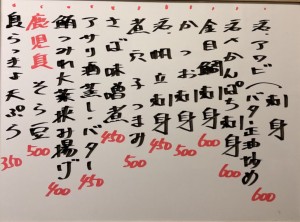 活アワビ 刺身
バター正油炒め 600
活かんぱち刺身 600
金目鯛刺身 600
かつお刺身 500
活帆立刺身 450
煮穴子つまみ 500
さば味噌煮 450
アサリ酒蒸し・バター 450
つみれ大葉挟み揚げ 400
鹿児島 そら豆 500
島らっきょ天ぷら 350